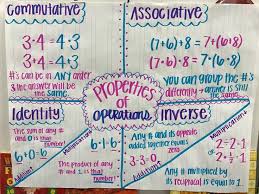 Commutative
3·4 = 4·3
3+4 = 4+3
#'s can be in ANY order
& the answer will be
the same.
Associative
(7+6)+8 = 7+(6+8)
(7·6)·8 = 7·(6·8)
You can group the #'s
differently & answer is still
the same
Properties
of
operations
Identity
The sum of any #
and 0 is that
number
6+0=6
Addition
Multiplication
The product of any
# and 1 is that #.
6·1=6
Inverse
Any # and its opposite
added together equals
zero
Addition
Multiplication
Any # multiplied by
its reciprocal is equal to 1.